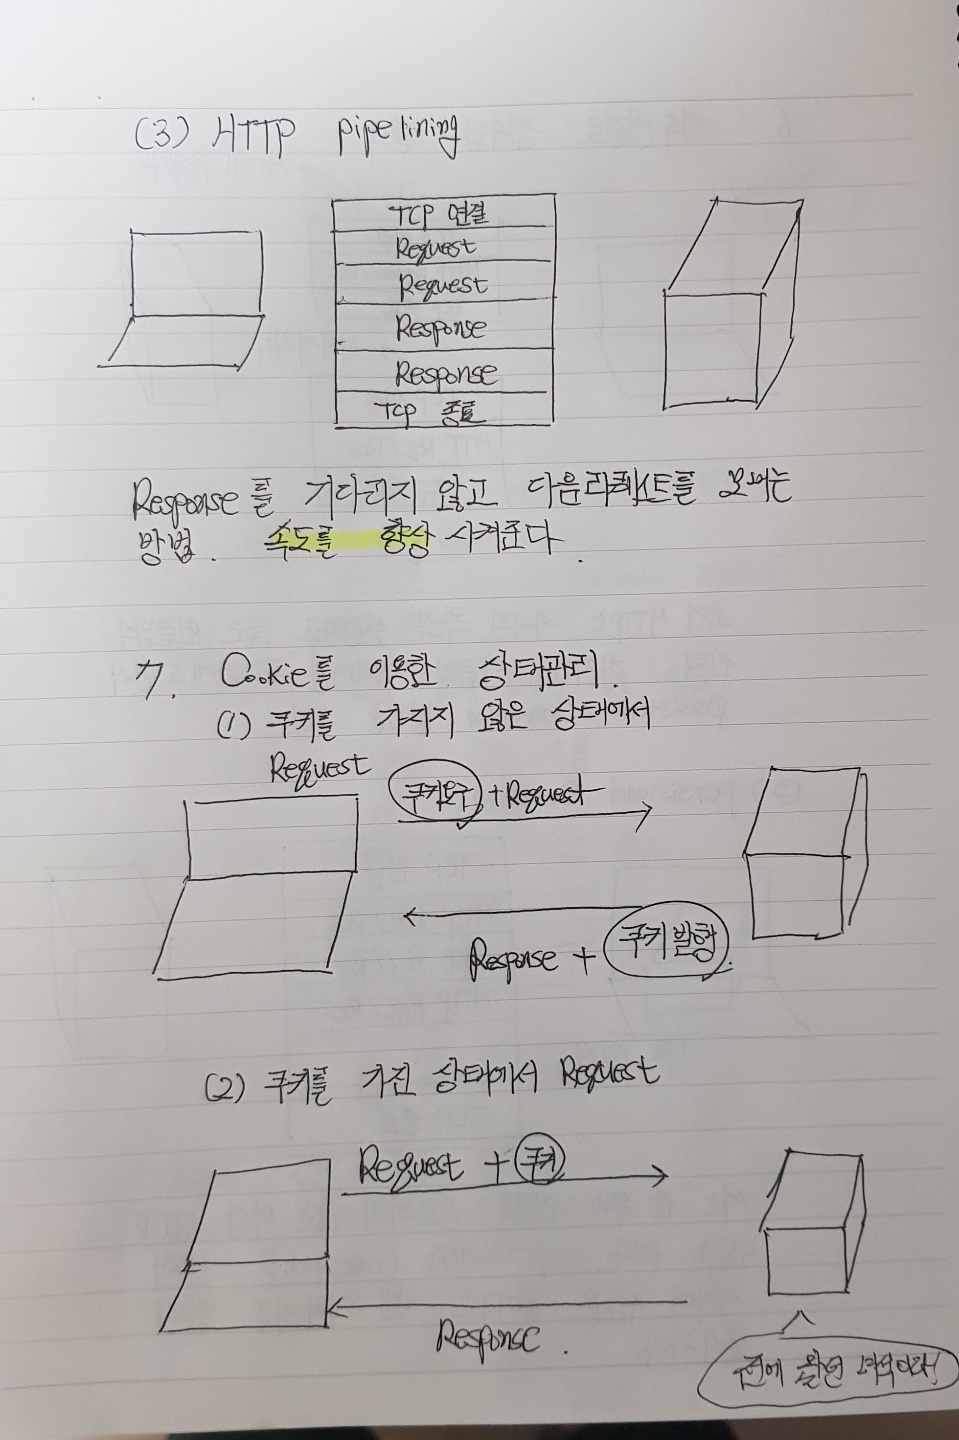 (3) HTTP pipelining
TCP 연결
Request
Request
Response
Response
TCP 종료
Response를 기다리지 않고 다음리퀘스트를 보내는
방법. 속도를 향상 시켜준다.
7. Cookie를 이용한 상태관리.
(1) 쿠키를 가지지 않은 상태에서
Request
쿠키요구 + Request
Response + 쿠키 발행.
(2) 쿠키를 가진 상태에서 Request
Request + 쿠키
Response.
전에 왔던 녀석이래!